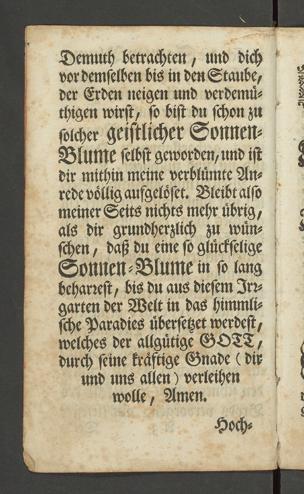 Demuth betrachten, und dich
vor demselben bis in den Staube,
der Erden neigen und verdemü-
thigen wirst, so bist du schon zu
solcher geistlicher Sonnen-
Blume selbst geworden, und ist
dir mithin meine verblümte An-
rede völlig aufgelöset. Bleibt also
meiner Seits nichts mehr übrig,
als dir grundherzlich zu wün-
schen, daß du eine so glückselige
Sonnen-Blume in so lang
beharrest, bis du aus diesem Irr-
garten der Welt in das himmli-
sche Paradies übersetzet werdest,
welches der allgütige GOTT,
durch seine kräftige Gnade (dir
und uns allen) verleihen
wolle, Amen.
Hoch-